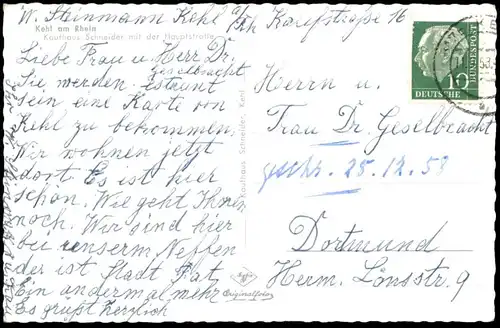 W. Steinmann Kehl a/Rh Kaufstraße 16
Kehl am Rhein
Kaufhaus Schneider mit der Hauptstraße
Liebe Frau u Herr Dr.
Geselbracht
Sie werden erstaunt
sein eine Karte von
Kehl zu bekommen.
Wir wohnen jetzt
dort. Es ist hier
schön. Wie geht Ihnen
noch. Wir sind hier
bei unserm Neffen
der ist Stadt Rat
Ein andermal mehr
Es grüßt herzlich
Kaufhaus Schneider, Kehl
Agfa
Originalfoto
10
DEUTSCHE
BUNDESPOST
Herrn u.
Frau Dr. Geselbracht
geschr. 25.12.58
Dortmund
Herm. Lönsstr. 9